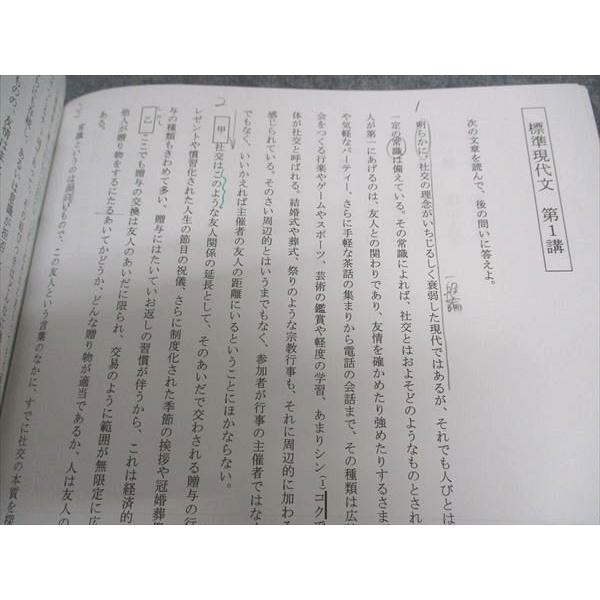 標準現代文 第1講
次の文章を読んで、後の問いに答えよ。
1
明らかに社交の理念がいちじるしく衰弱した現代ではあるが、それでも人びとは
一定の常識は備えている。その常識によれば、社交とはおよそどのようなものとされ
人が第一にあげるのは、友人との関わりであり、友情を確かめたり強めたりするさま
や気軽なパーティー、さらに手軽な茶話の集まりから電話の会話まで、その種類は広
会をつくる行楽やゲームやスポーツ、芸術の鑑賞や軽度の学習、あまりシン(1)コクで
体が社交と呼ばれる。結婚式や葬式、祭りのような宗教行事も、それに周辺的に加わる
感じられている。そのさい周辺的とはいうまでもなく、参加者が行事の主催者ではな
でもなく、いいかえれば主催者の友人の距離にいるということにほかならない。
2
甲 社交はこのような友人関係の延長として、そのあいだで交わされる贈与の行
レゼントや慣習化された人生の節目の祝儀、さらに制度化された季節の挨拶や冠婚葬
与の種類もきわめて多い。贈与にはたいていお返しの習慣が伴うから、これは経済的
乙 ここでも贈与の交換は友人のあいだに限られ、交易のように範囲が無限定に広
他人が贈り物をするにたるあいてかどうか、どんな贈り物が適当であるか、人は友人の
ある。
言葉というのは面白いもので、この友人という言葉のなかに、すでに社交の本質を探